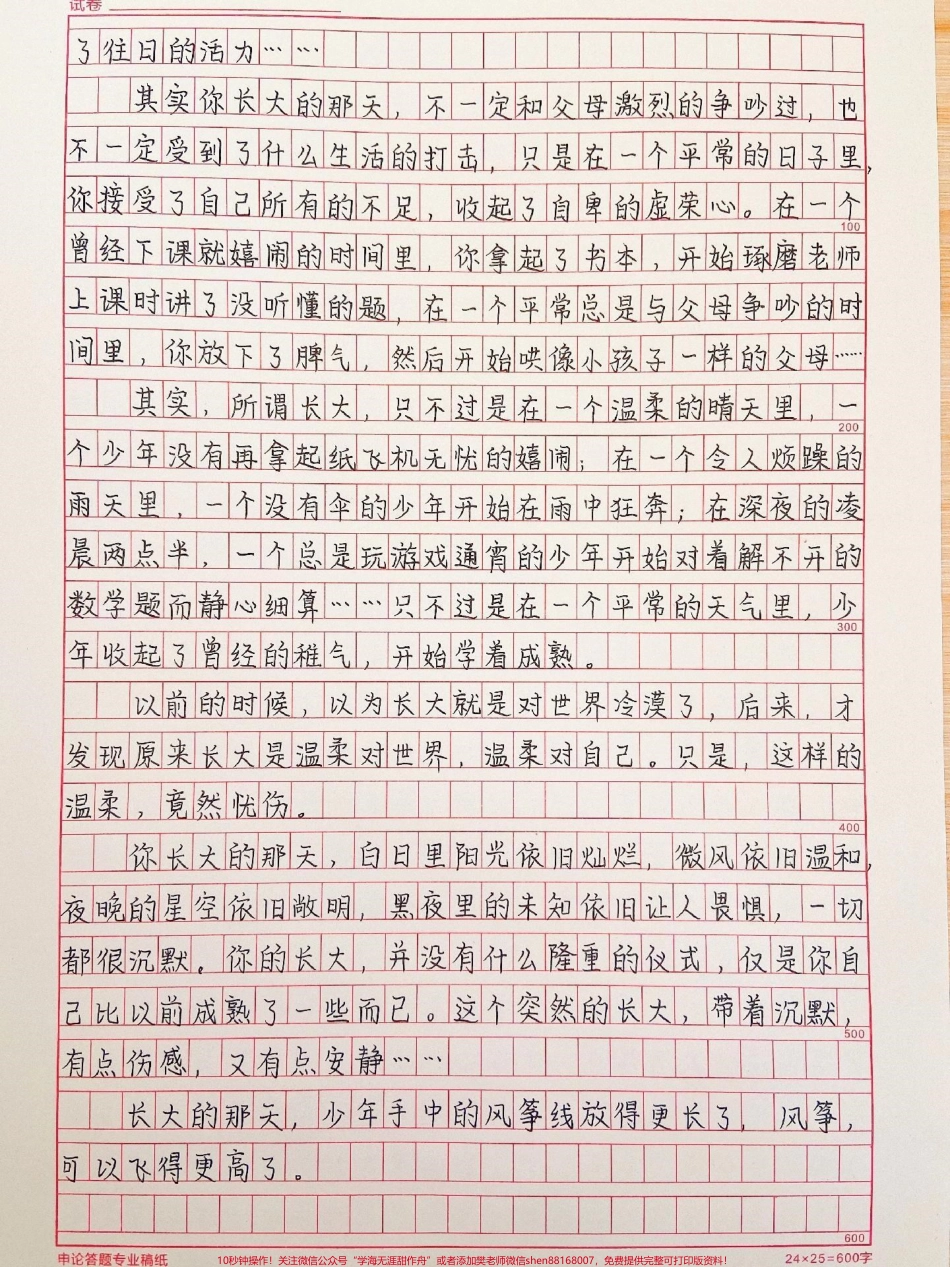 试卷
了往日的活力……
其实你长大的那天，不一定和父母激烈的争吵过，也
不一定受到了什么生活的打击，只是在一个平常的日子里，
你接受了自己所有的不足，收起了自卑的虚荣心。在一个
100
曾经下课就嬉闹的时间里，你拿起了书本，开始琢磨老师
上课时讲了没听懂的题，在一个平常总是与父母争吵的时
间里，你放下了脾气，然后开始哄像小孩子一样的父母……
其实，所谓长大，只不过是在一个温柔的晴天里，一
200
个少年没有再拿起纸飞机无忧的嬉闹；在一个令人烦躁的
雨天里，一个没有伞的少年开始在雨中狂奔；在深夜的凌
晨两点半，一个总是玩游戏通宵的少年开始对着解不开的
数学题而静心细算……只不过是在一个平常的天气里，少
300
年收起了曾经的稚气，开始学着成熟。
以前的时候，以为长大就是对世界冷漠了，后来，才
发现原来长大是温柔对世界，温柔对自己。只是，这样的
温柔，竟然忧伤。
400
你长大的那天，白日里阳光依旧灿烂，微风依旧温和，
夜晚的星空依旧敞明，黑夜里的未知依旧让人畏惧，一切
都很沉默。你的长大，并没有什么隆重的仪式，仅是你自
己比以前成熟了一些而已。这个突然的长大，带着沉默，
500
有点伤感，又有点安静……
长大的那天，少年手中的风筝线放得更长了，风筝，
可以飞得更高了。
600
申论答题专业稿纸 10秒钟操作！关注微信公众号“学海无涯甜作舟”或者添加樊老师微信shen88168007，免费提供完整可打印版资料！ 24×25=600字